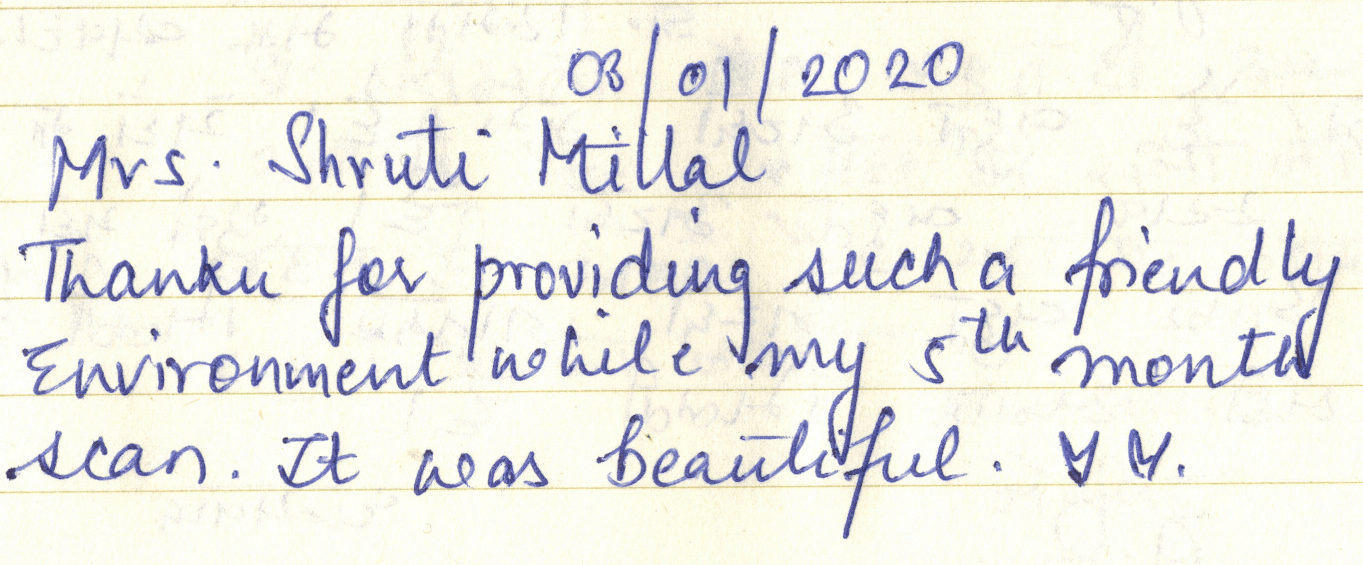 03/01/2020
Mrs. Shruti Mittal
Thanku for providing such a friendly
Environment while my 5th month
scan. It was beautiful.